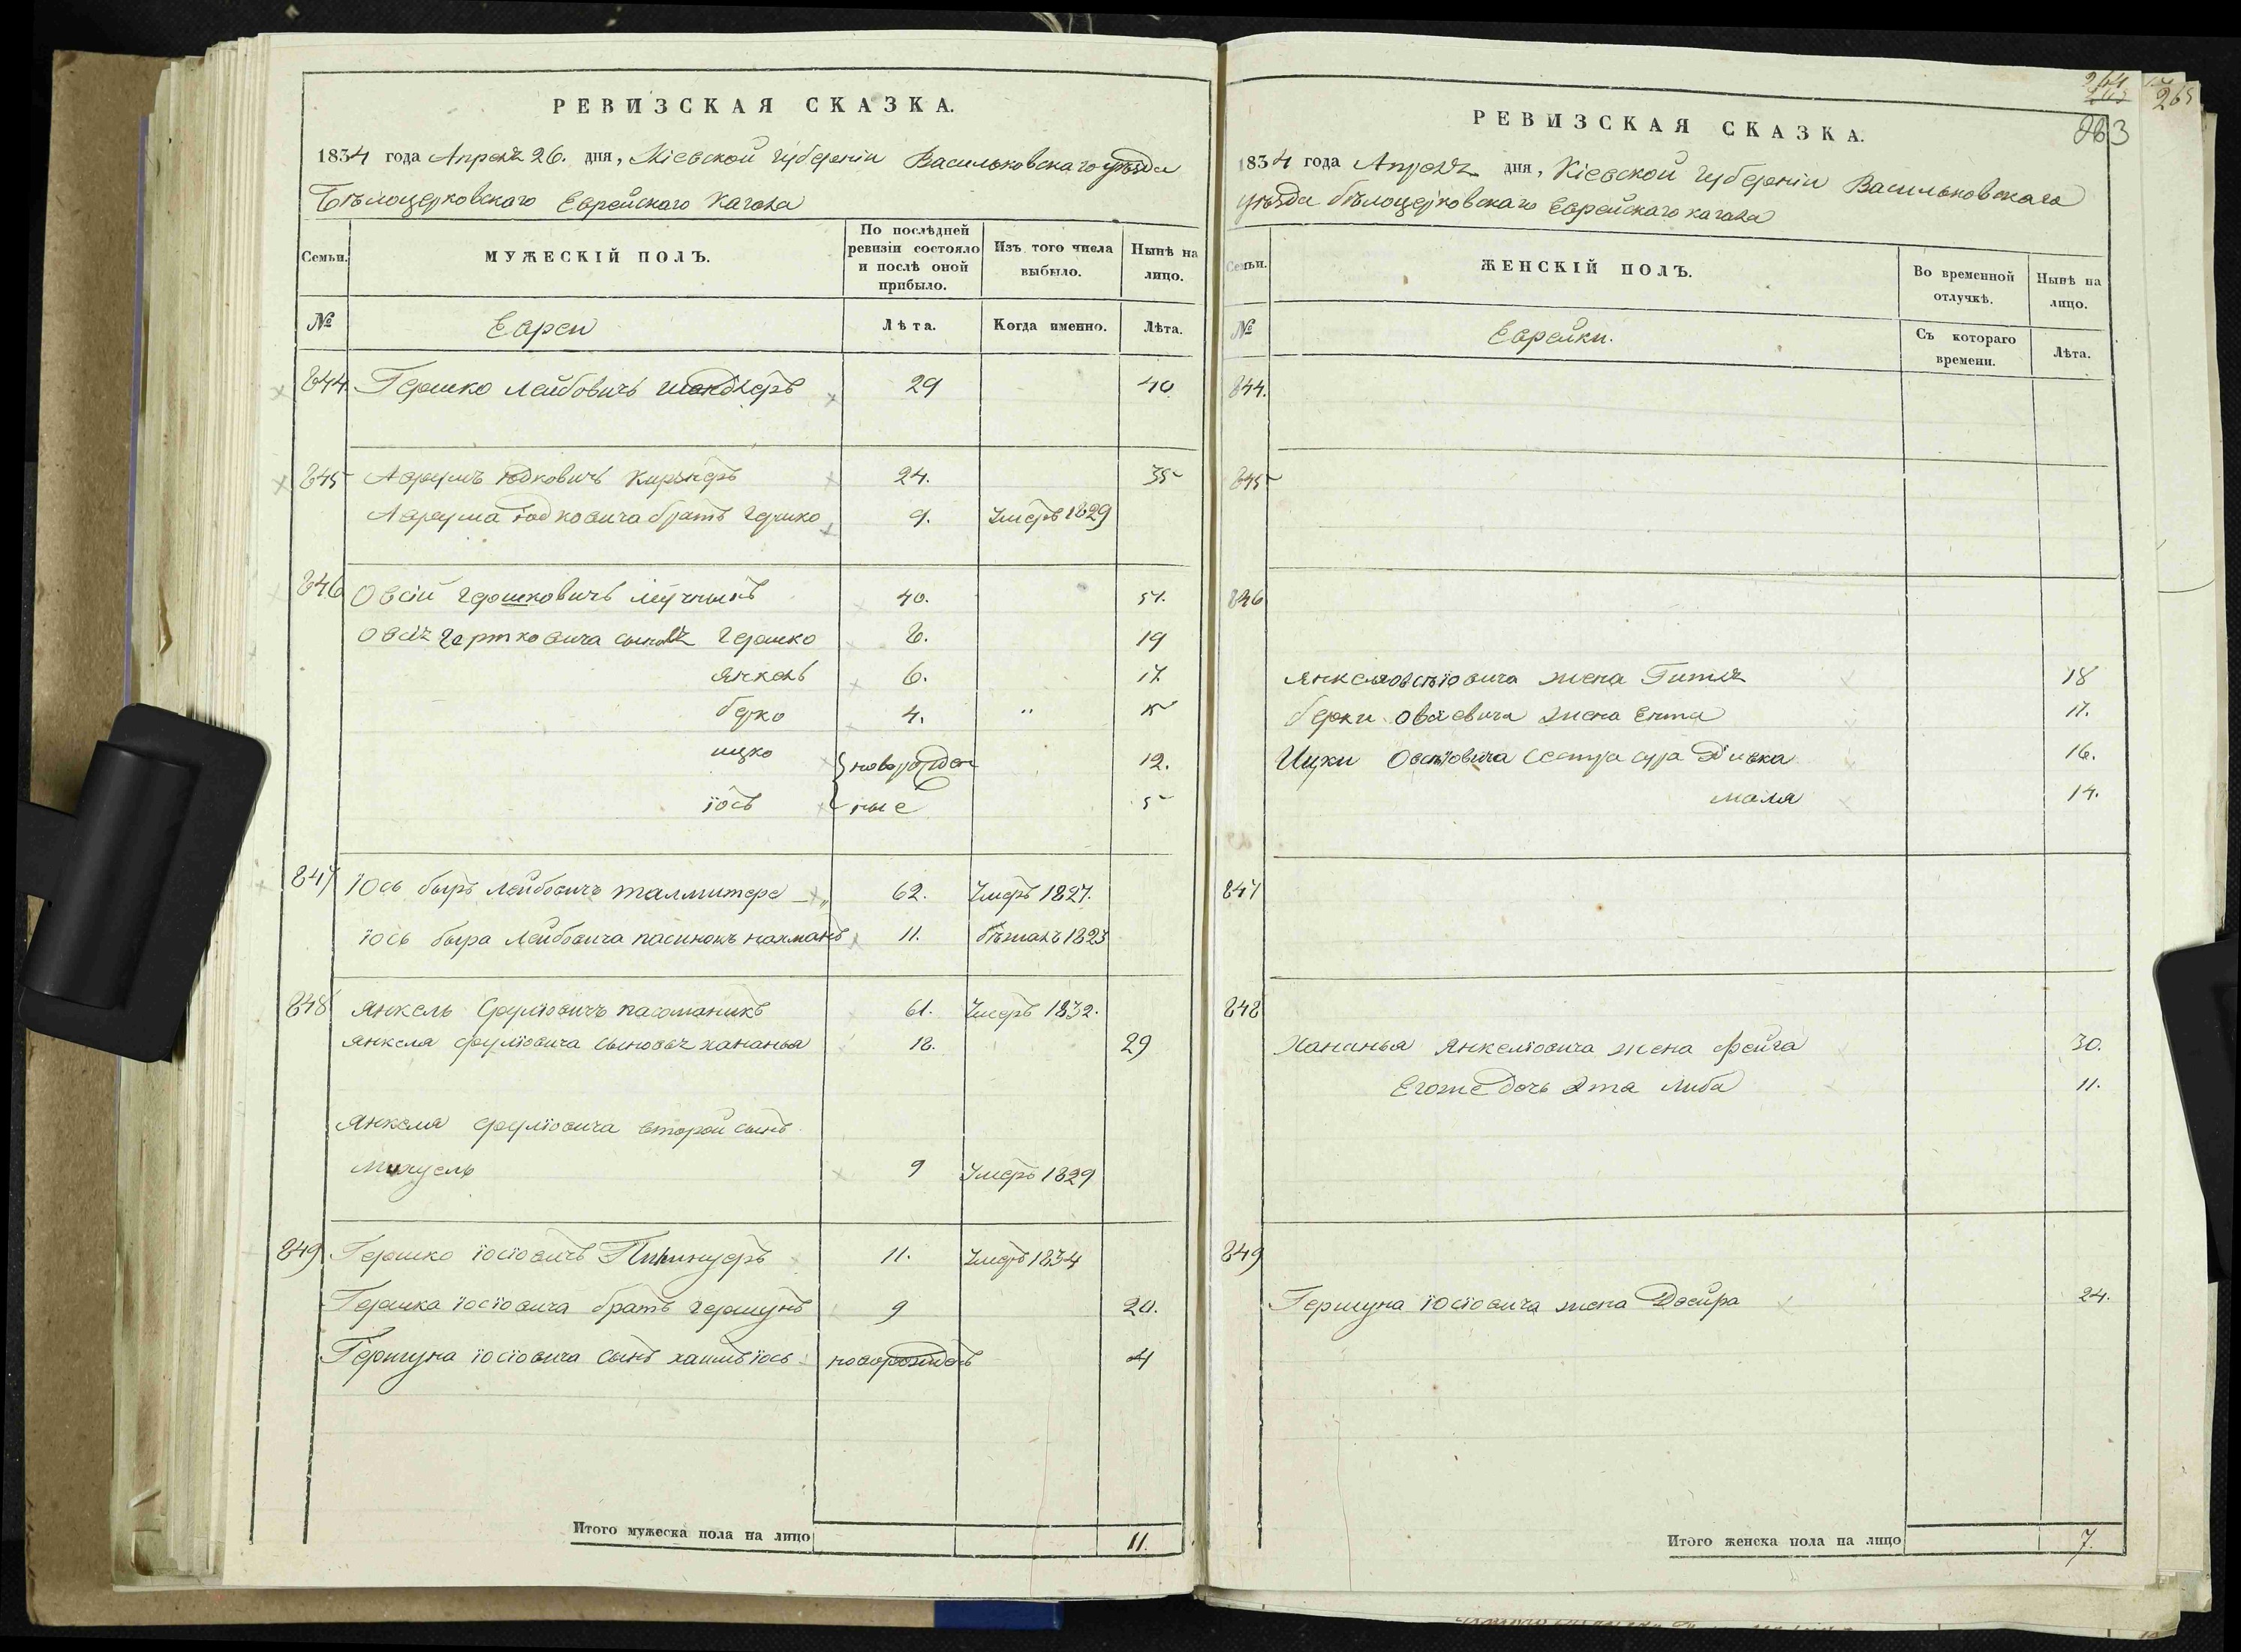 РЕВИЗСКАЯ СКАЗКА.
1834 года Апреля 26. дня, Кіевской губерніи Васильковскаго уѣзда
Бѣлоцерковскаго Еврейскаго Кагала
Семьи.
МУЖЕСКІЙ ПОЛЪ.
По послѣдней ревизіи состояло и послѣ оной прибыло.
Изъ того числа выбыло.
Нынѣ на лицо.
№
Евреи
Лѣта.
Когда именно.
Лѣта.
844 Гершко Лейбовичъ 29 40
845 Аврумъ Юдковичъ 24. 35
Аврума Юдковича братъ Гершко 9. Умеръ 1829
846 Овсій Гершковичъ 40. 51.
Овсія Гершковича сыновя Гершко 8. 19
Янкель 6. 17
берко 4. " 15
ицко новорожден 12.
іось ные 5
847 Іось беръ Лейбовичъ 62. Умеръ 1827.
іось бера Лейбовича пасинокъ нахманъ 11. бѣжалъ 1823
848 Янкель Сруліовичъ пасоманикъ 61. Умеръ 1832.
Янкеля Сруліовича сыновья хананья 18. 29
Янкеля Сруліовича второй сынъ
9 Умеръ 1829
849 Гершко іосіовичъ 11. Умеръ 1834
Гершка іосіовича братъ гершунъ 9 20.
Гершуна іосіовича сынъ хаимъ іось новорожденъ 4
Итого мужеска пола на лицо 11.
264
265
263
РЕВИЗСКАЯ СКАЗКА.
1834 года Апреля дня, Кіевской губерніи Васильковскаго
уѣзда бѣлоцерковскаго Еврейскаго кагала
Семьи.
ЖЕНСКІЙ ПОЛЪ.
Во временной отлучкѣ.
Нынѣ на лицо.
№
Еврейки.
Съ котораго времени.
Лѣта.
844.
845
846
Янкеля Овсѣіовича жена Гитля 18
берки Овсіевича жена Ента 17.
Ицки Овсѣіовича сестра сура Дивка 16.
маля 14.
847
848
Хананья Янкеліовича жена Фейга 30.
Егоже дочь Эта Либа 11.
849
Гершуна іосіовича жена Двейра 24.
Итого женска пола на лицо 7.